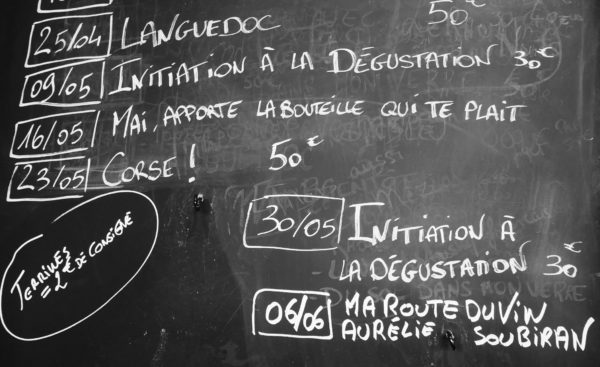 25/04 LANGUEDOC 50
09/05 INITIATION À LA DÉGUSTATION 30€
16/05 MAI, APPORTE LA BOUTEILLE QUI TE PLAIT
23/05 CORSE ! 50€
TERRINES
= 2€ DE CONSIGNE
30/05 INITIATION À
LA DÉGUSTATION 30€
06/06 MA ROUTE DU VIN
AURÉLIE SOUBIRAN